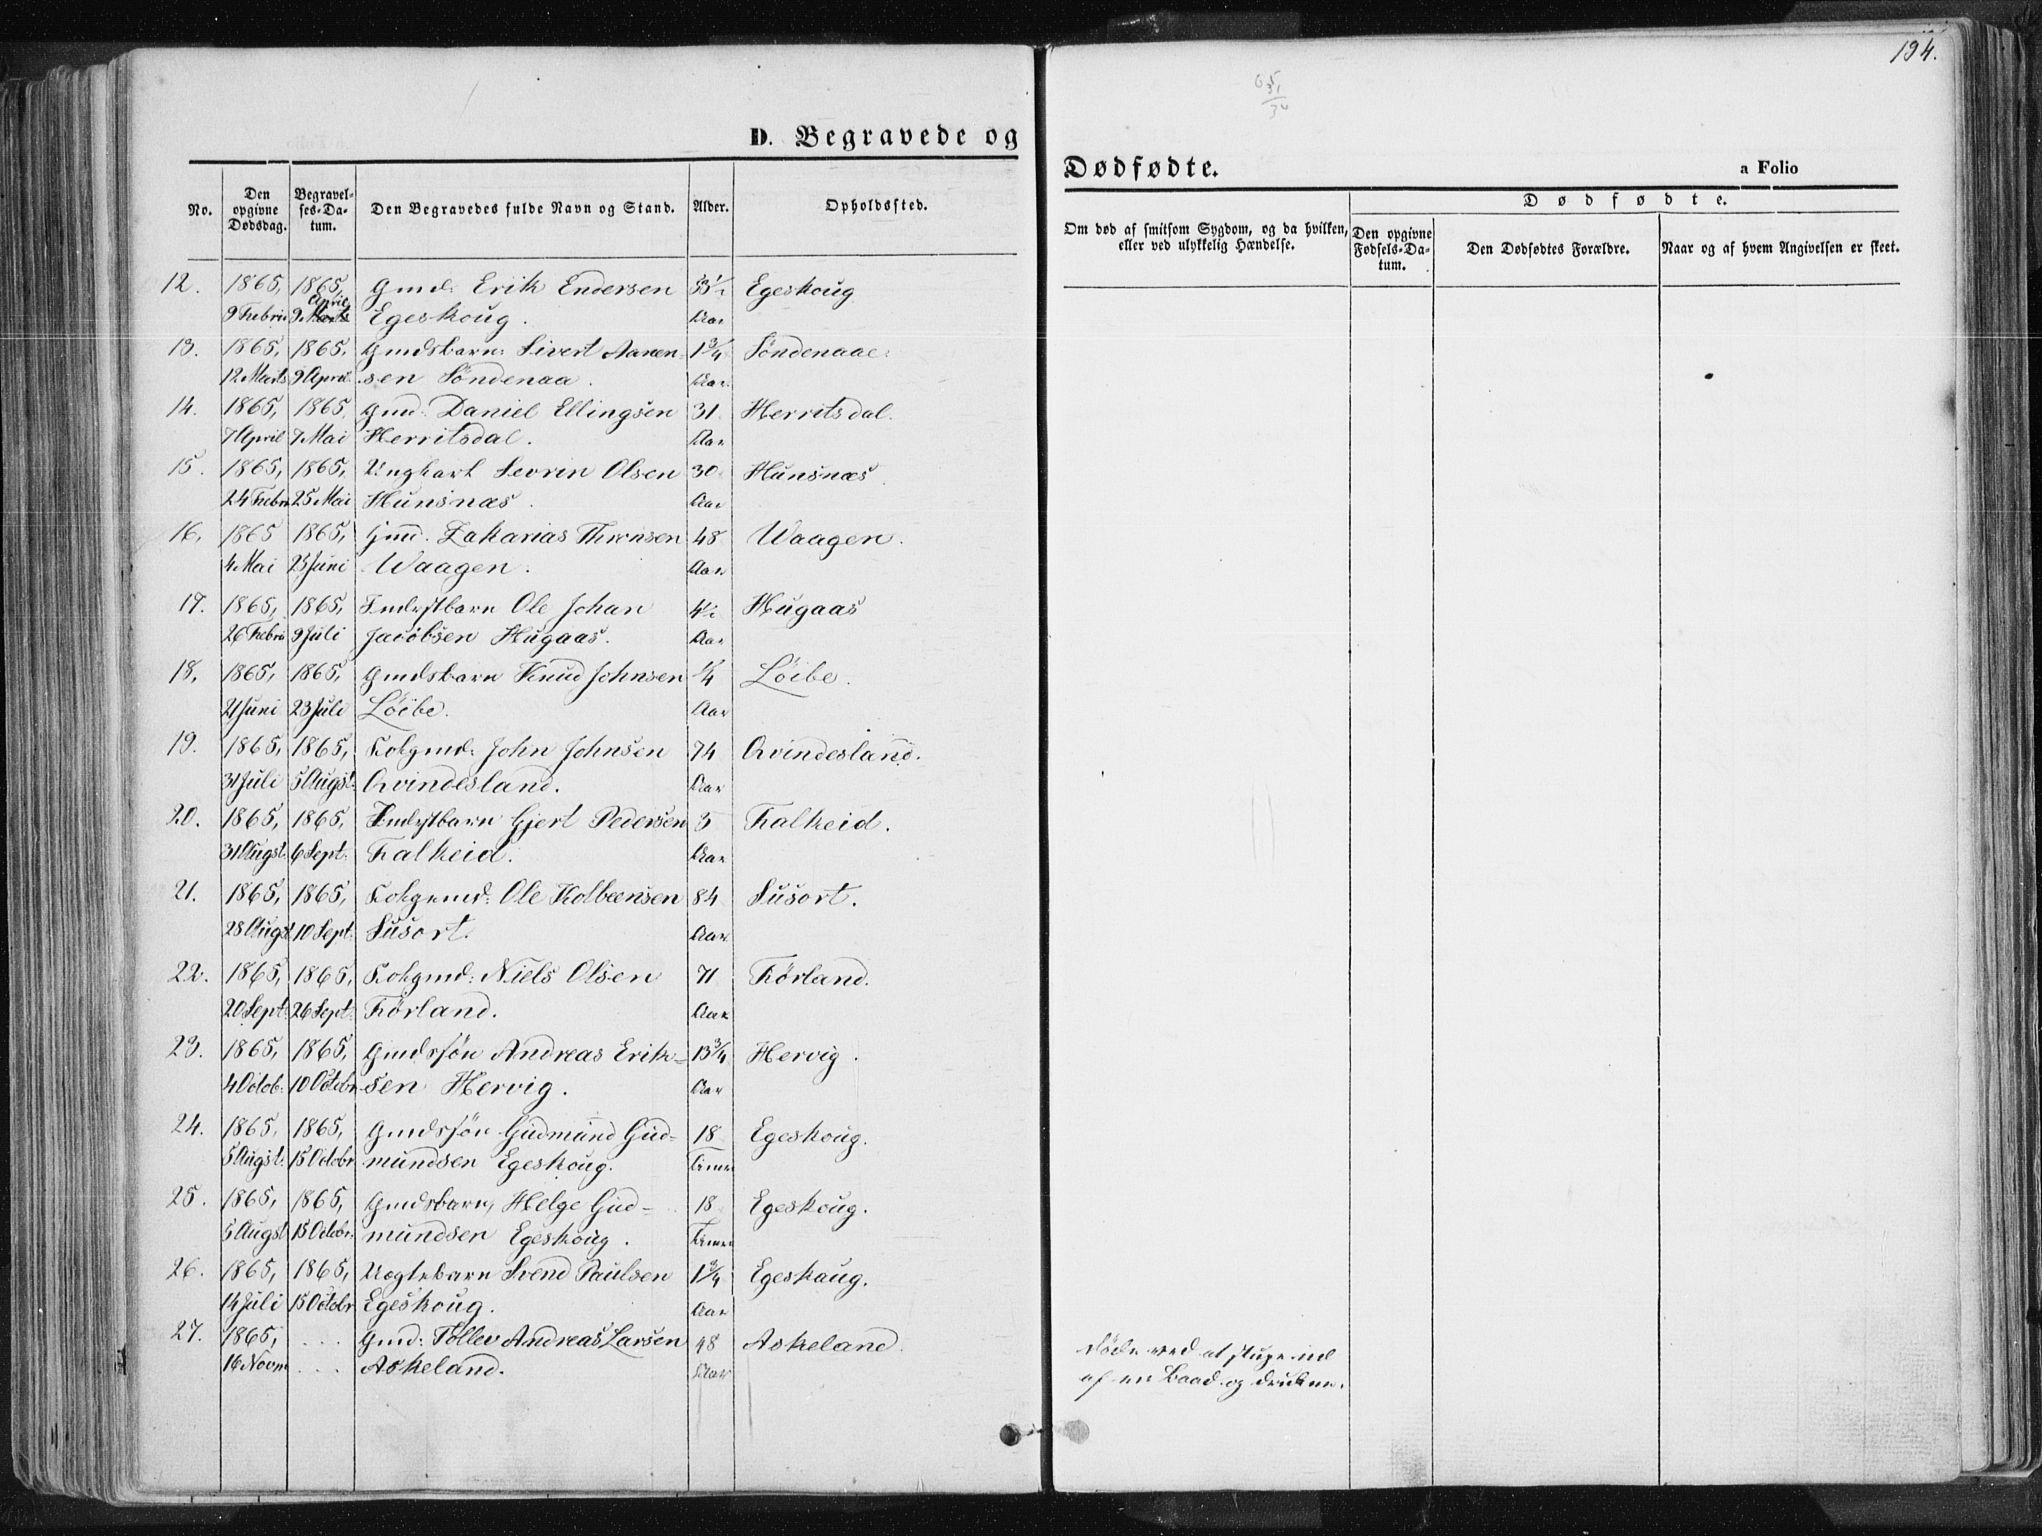 194.
D. Begravede og
Dødfødte.
a Folio
No.
Den opgivne Dødsdag.
Begravelses-Datum.
Den Begravedes fulde Navn og Stand.
Alder.
Opholdssted.
Om død af smitsom Sygdom, og da hvilken,
eller ved ulykkelig Hændelse.
Dødfødte.
Den opgivne Fødsels-Datum.
Den Dødfødtes Forældre.
Naar og af hvem Angivelsen er skeet.
12. 1865, 1865, Gmd: Erik Endersen Egeskoug
9 Febru 9 April Egeskoug. Aar
13. 1865, 1865, Gmdsbarn: Sivert Aanen- 1 3/4 Söndenaae
12 Marts 9 April sen Söndenaa. Aar
14. 1865, 1865, Gmd: Daniel Ellingsen 31 Herritsdal.
7 April 7 Mai Herritsdal. Aar
15. 1865, 1865, Ungkarl Sevrin Olsen 30 Hunsnæs.
24 Febru 25 Mai Hunsnæs. Aar
16, 1865 1865, Gmd. Zakarias Thronsen 48 Waagen.
4 Mai 23 Juni Waagen. Aar
17. 1865, 1865, Inderstbarn Ole Johan 4 1/2 Hugaas
26 Febru 9 Juli Jacobsen Hugaas. Aar
18, 1865, 1865, Gmdsbarn Knud Johnsen 1/4 Löibe.
21 Juni 23 Juli Löibe. Aar
19. 1865, 1865, Folgmd: John Johnsen 74 Qvindesland.
31 Juli 5 Augst: Qvindesland. Aar
20. 1865, 1865, Inderstbarn Gjert Pedersen 5 Falkeid.
31 Augst. 6 Sept. Falkeid. Aar
21. 1865, 1865, Folgemd: Ole Kolbeensen 84 Susort.
28 Augst 10 Sept: Susort. Aar
22. 1865, 1865, Folgmd: Niels Olsen 71 Förland.
20 Sept: 26 Sept: Förland. Aar
23. 1865, 1865, Gmdssön Andreas Erik- 13 3/4 Hervig.
4 Octob: 10 Octobr sen Hervig. Aar
24. 1865, 1865, Gmdssön Gudmund Gud- 18 Egeskoug.
5 Augst: 15 Octobr mundsen Egeskoug. Timer
25. 1865, 1865, Gmdsbarn, Helge Gud- 18 Egeskoug.
5 Augst 15 Octobr. mundsen Egeskoug. Timer
26. 1865, 1865, Uægtebarn Svend Paulsen 1 3/4 Egeskaug.
14 Juli 15 Octobr Egeskoug. Aar
27. 1865, . . . Gmd: Tollev Andreas Larsen 48 Askeland.
16 Novm . . . Askeland. Aar
Döde ved at stupe ud
af en Baad og drukne.